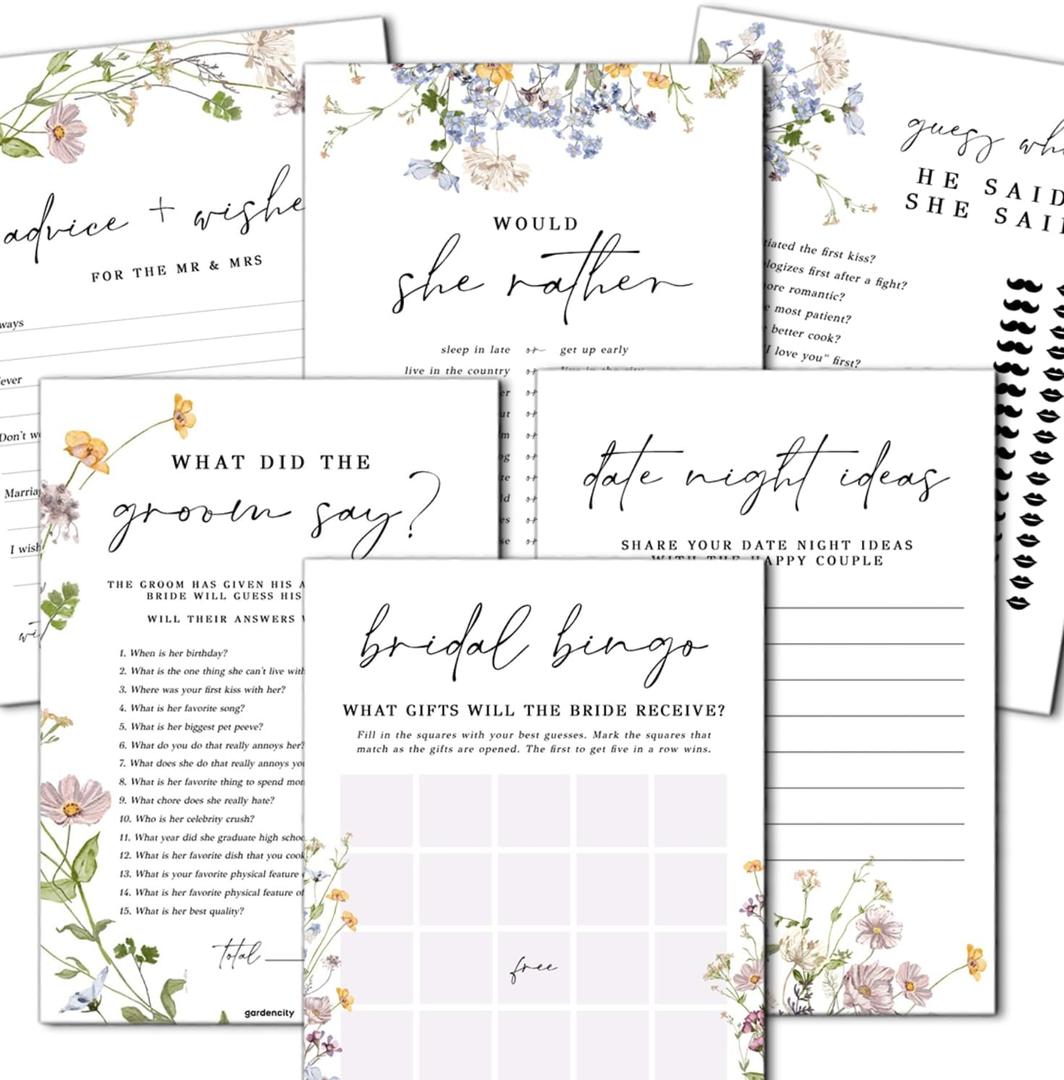 advice + wishe
FOR THE MR & MRS
ways
ever
Don't w
Marria
I wish
WOULD
she rather
sleep in late or get up early
live in the country or
or
or
or
or
or
or
or
or
guess
HE SAID
SHE SAI
tiated the first kiss?
logizes first after a fight?
ore romantic?
most patient?
better cook?
"I love you" first?
WHAT DID THE
groom say?
THE GROOM HAS GIVEN HIS A
BRIDE WILL GUESS HIS
WILL THEIR ANSWERS
1. When is her birthday?
2. What is the one thing she can't live with
3. Where was your first kiss with her?
4. What is her favorite song?
5. What is her biggest pet peeve?
6. What do you do that really annoys her?
7. What does she do that really annoys yo
8. What is her favorite thing to spend mon
9. What chore does she really hate?
10. Who is her celebrity crush?
11. What year did she graduate high schoo
12. What is her favorite dish that you cook
13. What is your favorite physical feature
14. What is her favorite physical feature of
15. What is her best quality?
total
gardencity
date night ideas
SHARE YOUR DATE NIGHT IDEAS
WITH THE HAPPY COUPLE
bridal bingo
WHAT GIFTS WILL THE BRIDE RECEIVE?
Fill in the squares with your best guesses. Mark the squares that
match as the gifts are opened. The first to get five in a row wins.
free